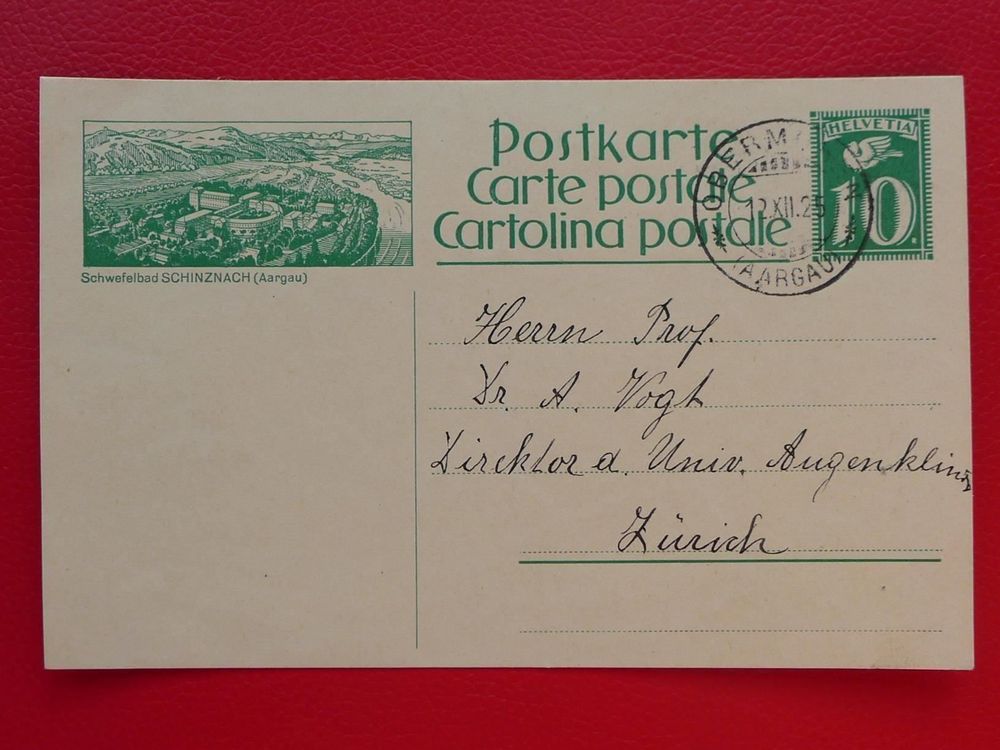 Postkarte
Carte postale
Cartolina postale
HELVETIA
10
12.XII.25
(AARGAU)
Schwefelbad SCHINZNACH (Aargau)
Herrn Prof.
Dr. A. Vogt
Direktor d. Univ. Augenklinik
Zürich